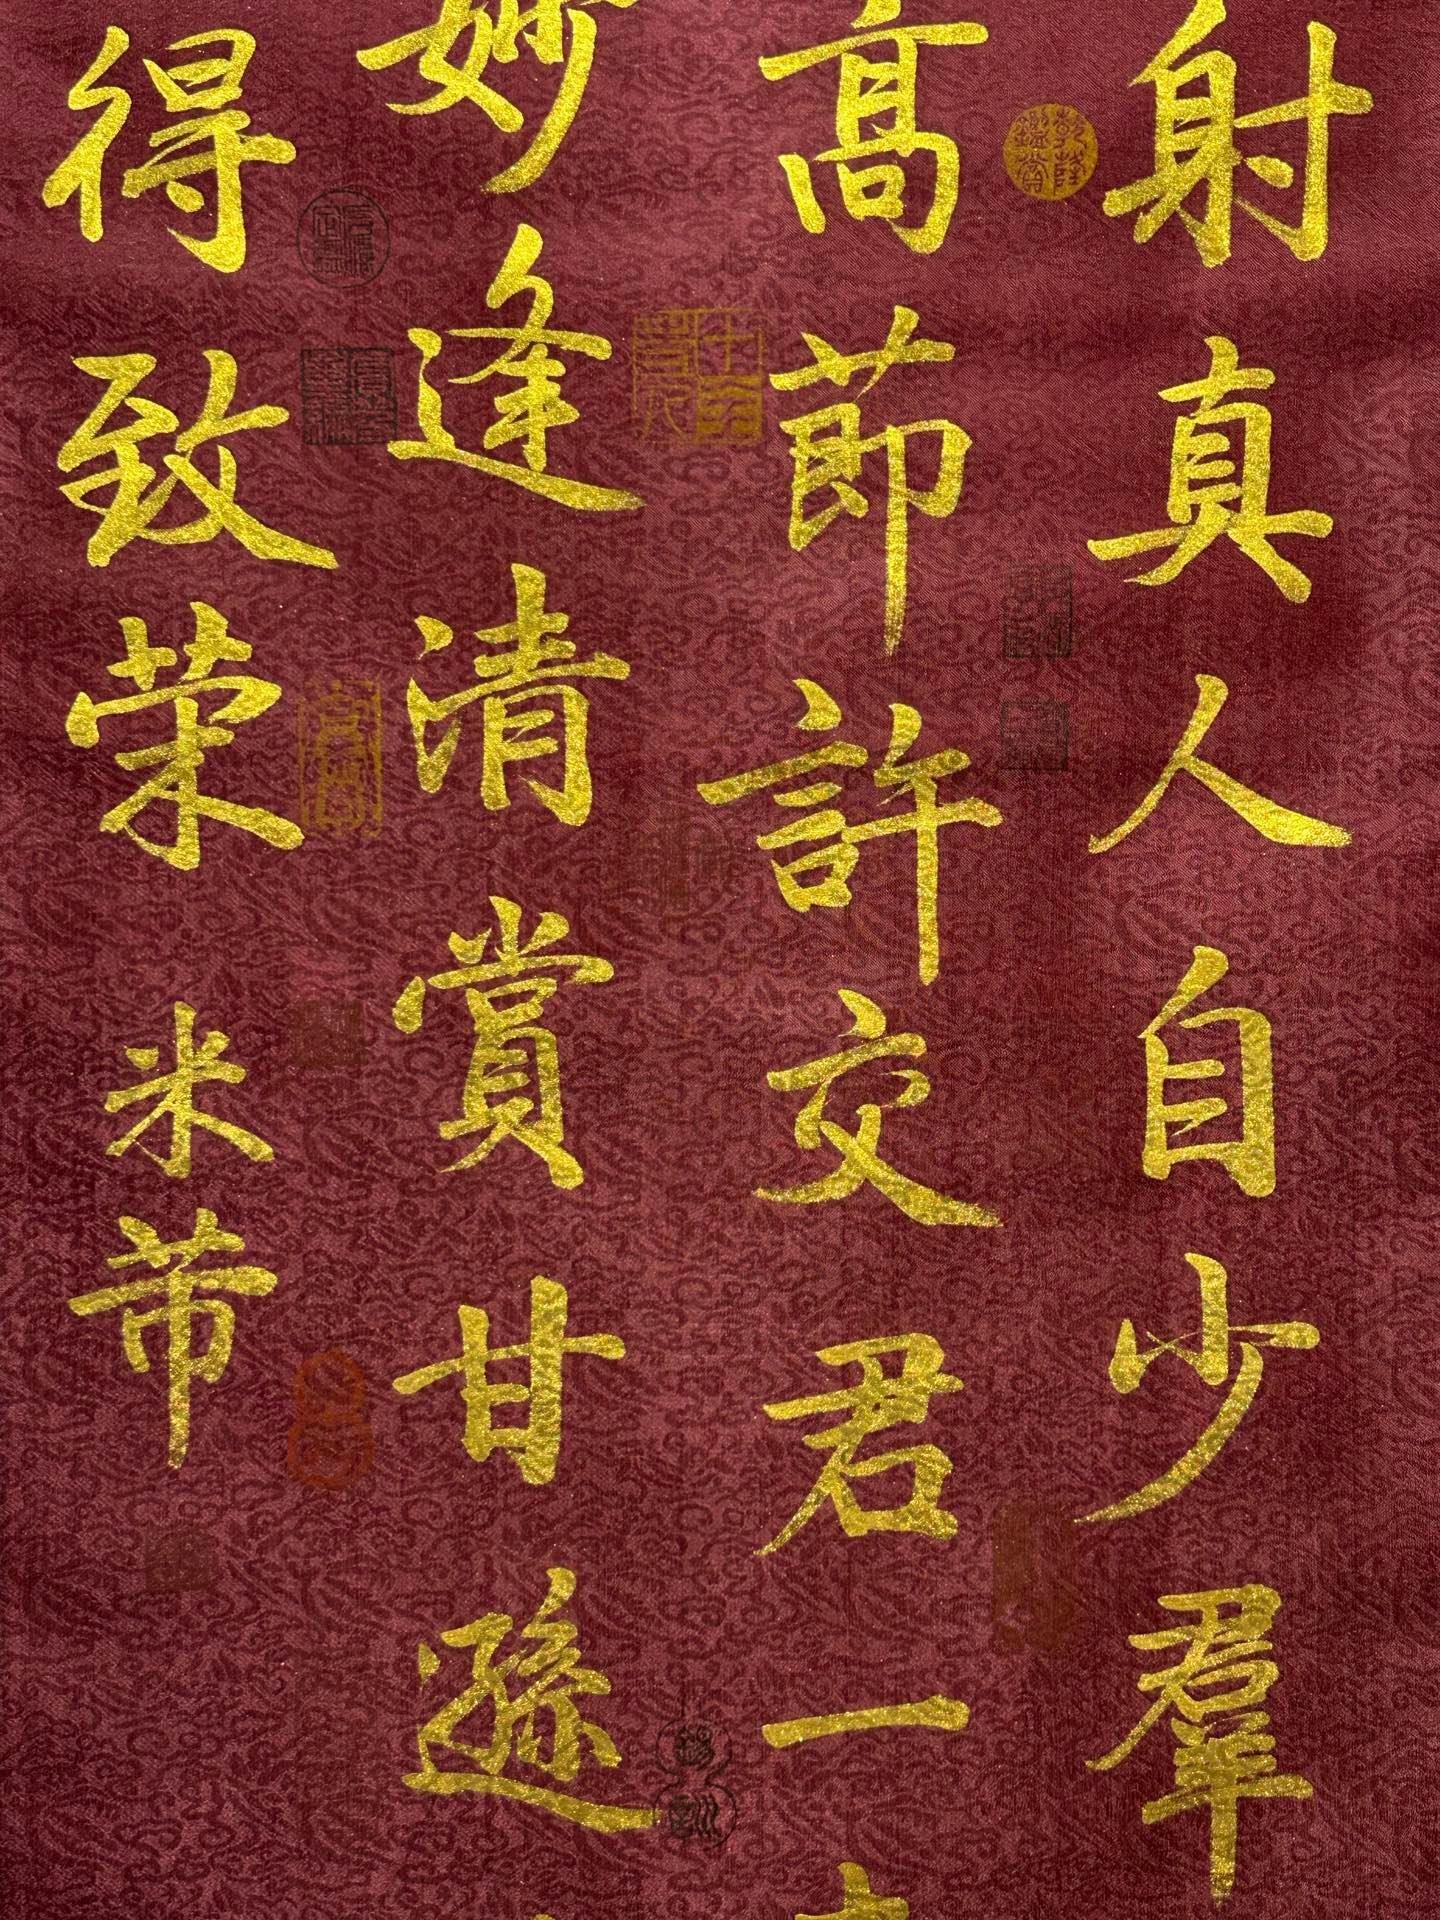 射真人自少羣
高節許交君一
妙逢清賞甘遜
得致荣米芾
乾隆鑑賞